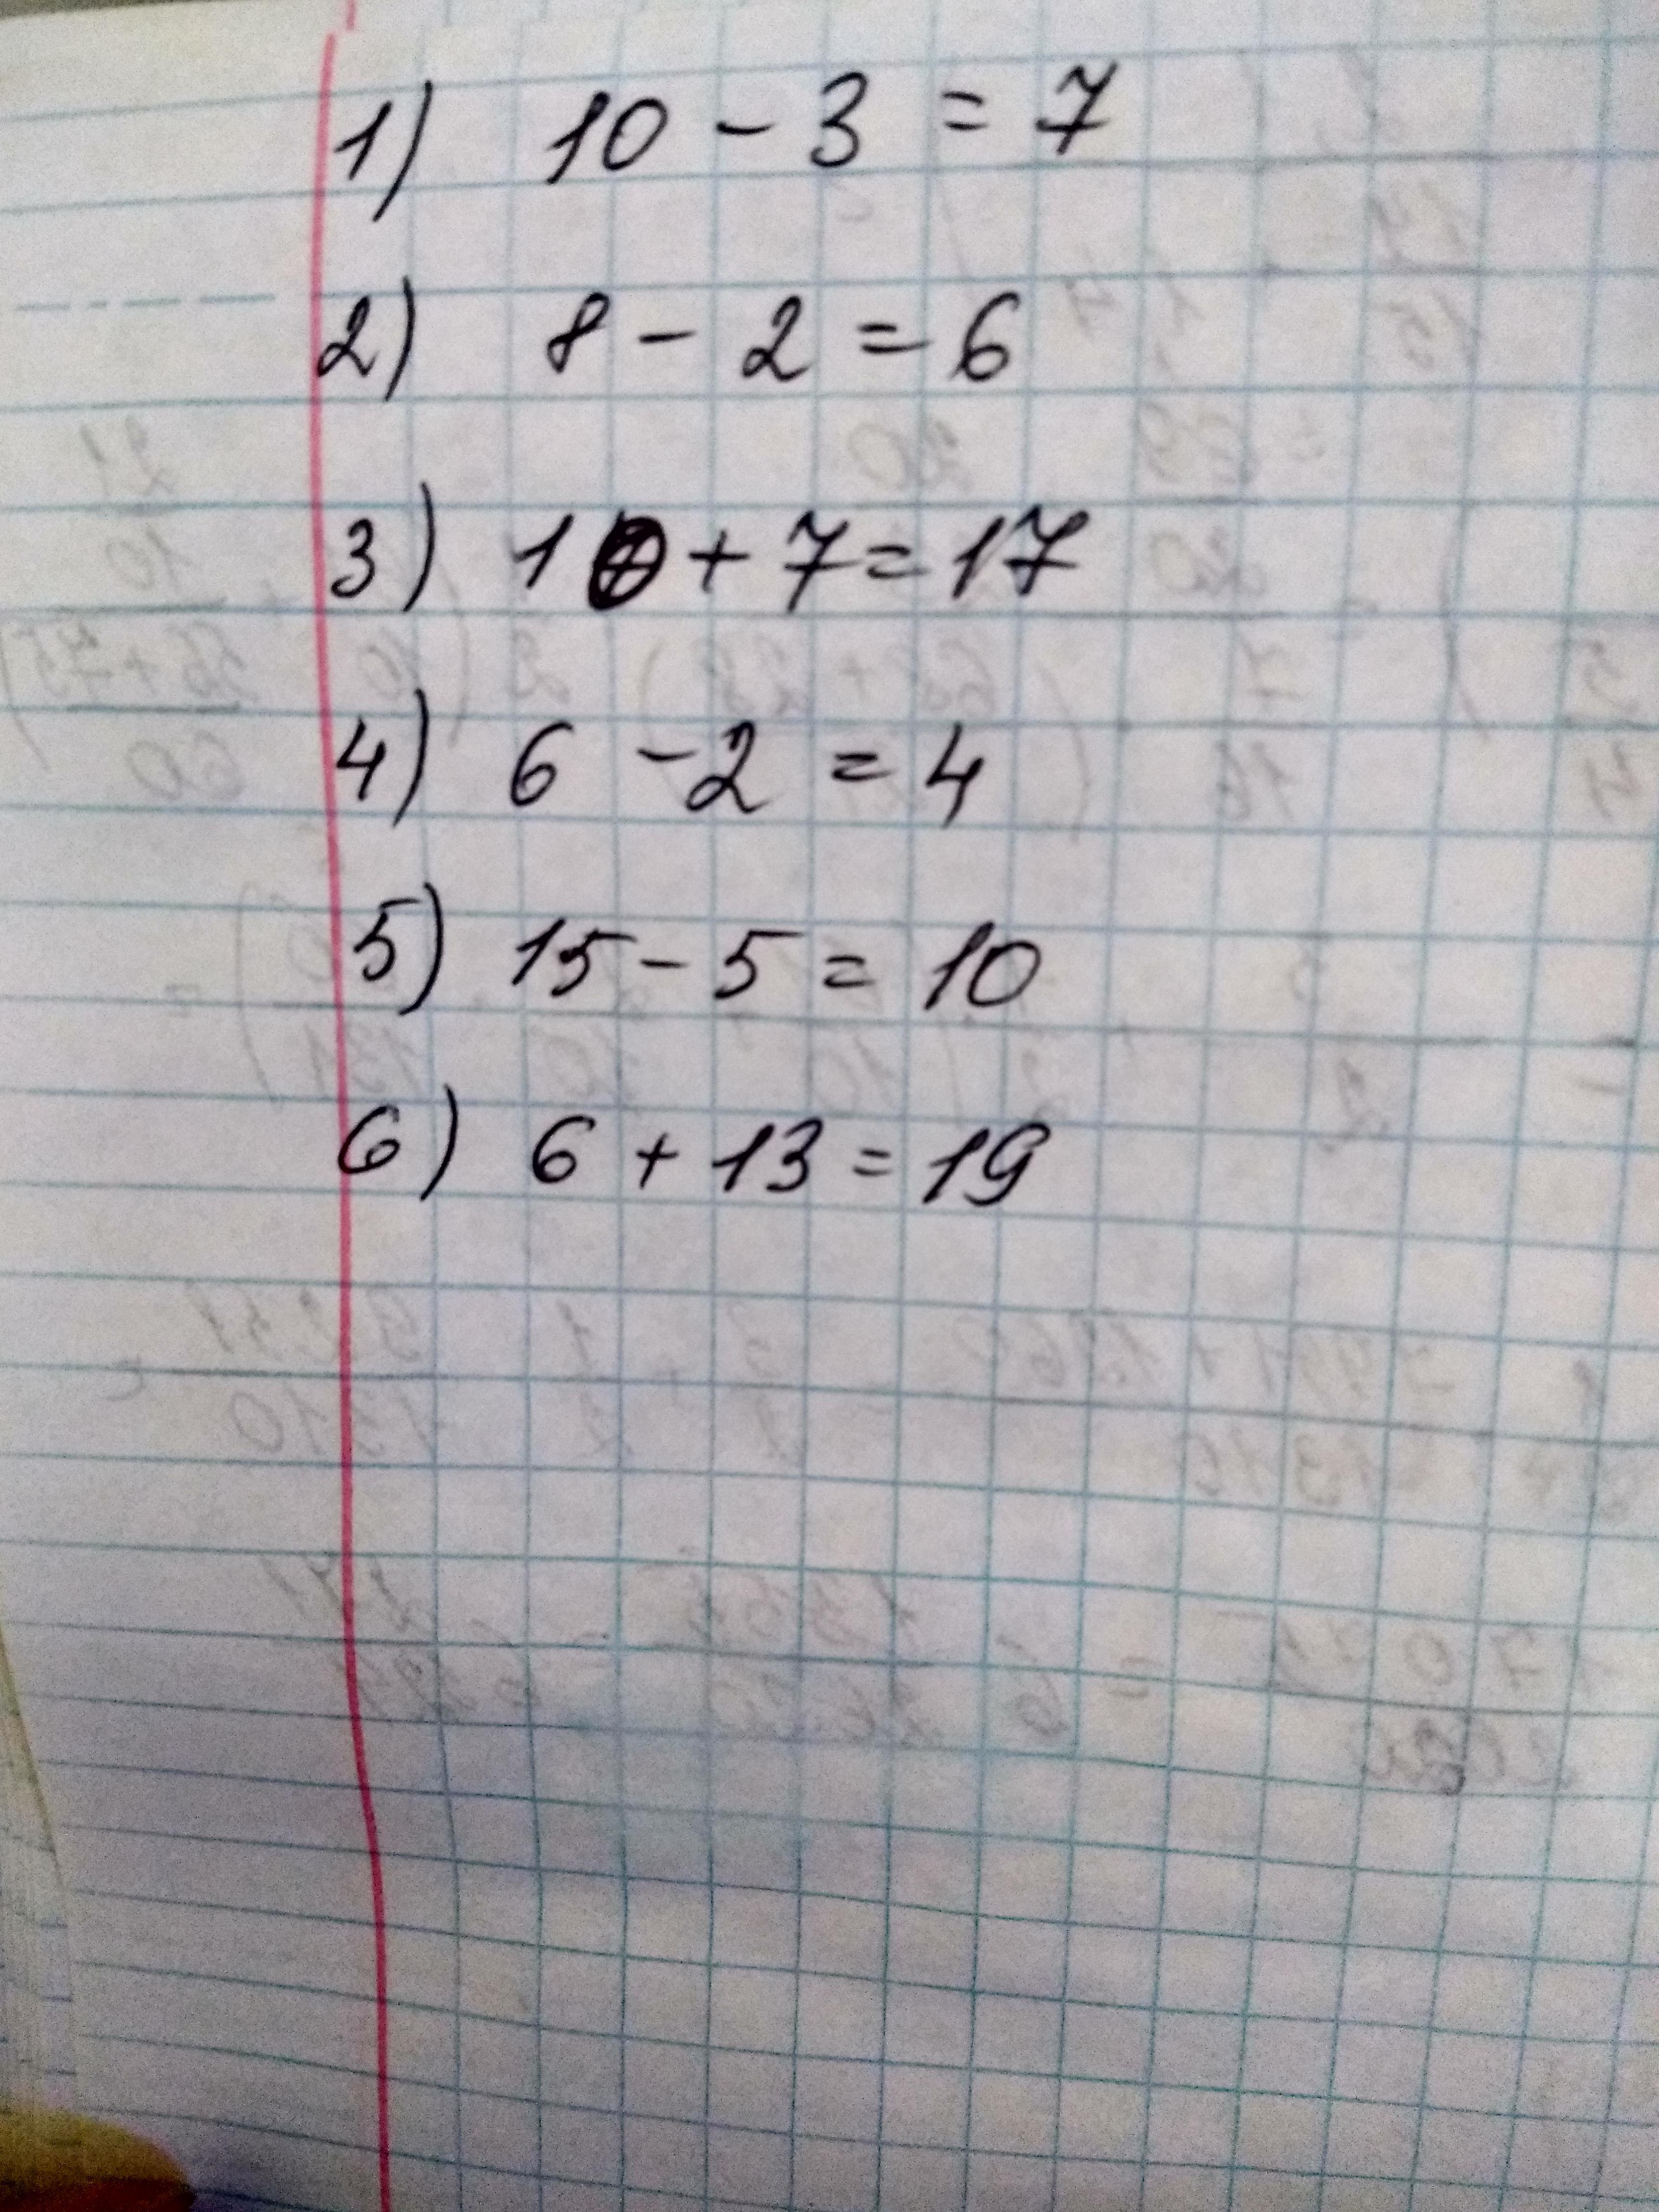 1) 10 - 3 = 7
2) 8 - 2 = 6
3) 10 + 7 = 17
4) 6 - 2 = 4
5) 15 - 5 = 10
6) 6 + 13 = 19